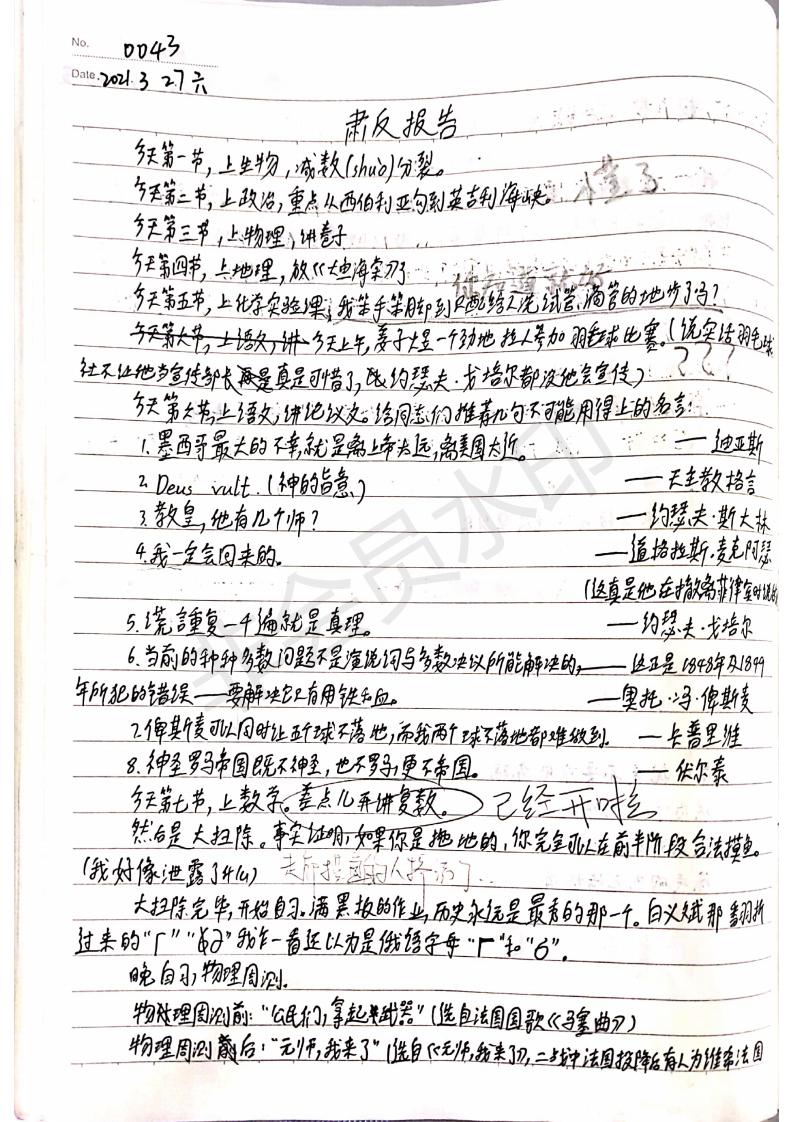 No. 0043
Date. 2021. 3 27 六
肃反报告
今天第一节,上生物,减数(shuò)分裂。
今天第二节,上政治,重点从西伯利亚匈到英吉利海峡。 懂了
今天第三节,上物理,讲卷子
今天第四节,上地理,放《大鱼海棠》了
你知道就好
今天第五节,上化学实验课,我笨手笨脚到只配给人洗试管、滴管的地步了吗?
今天第六节,上语文,讲 今天上午,姜子煜一个劲地拉人参加羽毛球比赛。(说实话羽毛球
社不让他当宣传部长真是可惜了,连约瑟夫·戈培尔都没他会宣传) ???
今天第六节,上语文,讲论议文。给同志们推荐几句不可能用得上的名言:
1.墨西哥最大的不幸,就是离上帝太远,离美国太近。 ——迪亚斯
2. Deus vult.(神的旨意) ——天主教格言
3.教皇,他有几个师? ——约瑟夫·斯大林
4.我一定会回来的。 ——道格拉斯·麦克阿瑟
(这真是他在撤离菲律宾时说的
5.谎言重复一千遍就是真理。 ——约瑟夫·戈培尔
6.当前的种种多数问题不是演说词与多数决议所能解决的,——这正是1848年及1849
年所犯的错误——要解决它只有用铁和血。 ——奥托·冯·俾斯麦
7.俾斯麦可以同时让五个球不落地,而我两个球不落地都难做到。 ——卡普里维
8.神圣罗马帝国既不神圣,也不罗马,更不帝国。 ——伏尔泰
今天第七节,上数学。差点儿开讲复数。 已经开啦
然后是大扫除。事实证明,如果你是拖地的,你完全可以在前半阶段合法摸鱼。
(我好像泄露了什么)
大扫除完毕,开始自习。满黑板的作业,历史永远是最秀的那一个。白义斌那翻折
过来的“Γ”“ 我乍一看还以为是俄语字母“Г”和“б”。
晚自习,物理周测。
物理周测前:“公民们,拿起武器”(选自法国国歌《马赛曲》)
物理周测后:“元帅,我来了”(选自《元帅,我来了》,二战中法国投降后有人为维希法国